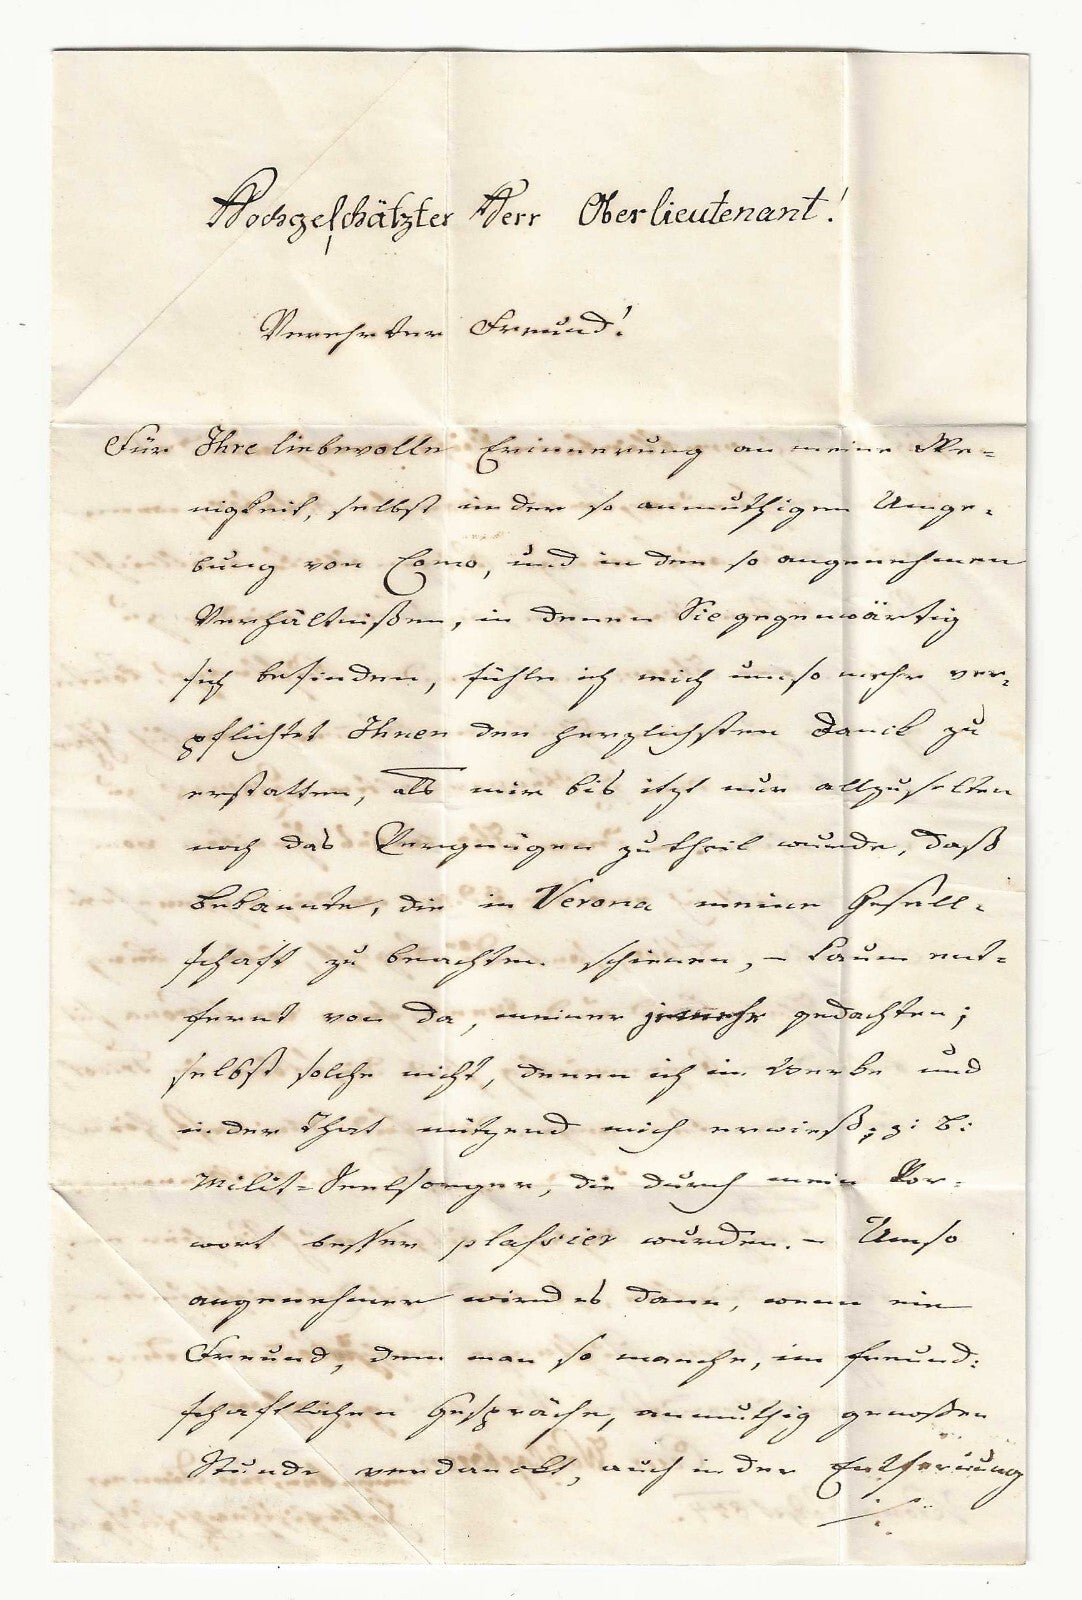 Hochgeschätzter Herr Oberlieutenant!
Verehrter Freund!
Für Ihre liebevolle Erinnerung an meine We-
nigkeit, selbst in der so anmuthigen Umge-
bung von Como, und in den so angenehmen
Verhältnißen, in denen Sie gegenwärtig
sich befinden, fühle ich mich umso mehr ver-
pflichtet Ihnen den herzlichsten Danck zu
erstatten, als mir bis itzt nur allzuselten
noch das Vergnügen zu theil wurde, daß
Bekannte, die in Verona meine Gesell-
schaft zu beachten schienen, - kaum ent-
fernt von da, meiner gedachten;
selbst solche nicht, denen ich im Werke und
in der That nützend mich erwieß; z: B:
Milit=Seelsorger, die durch mein Vor-
wort besser plassier wurden. - Umso
angenehmer wird es dann, wenn ein
Freund, dem man so manche, im freund:
schaftlichen Gespräche, anmuthig genoßen
Stunde verdanckt, auch in der Entfernung
./.